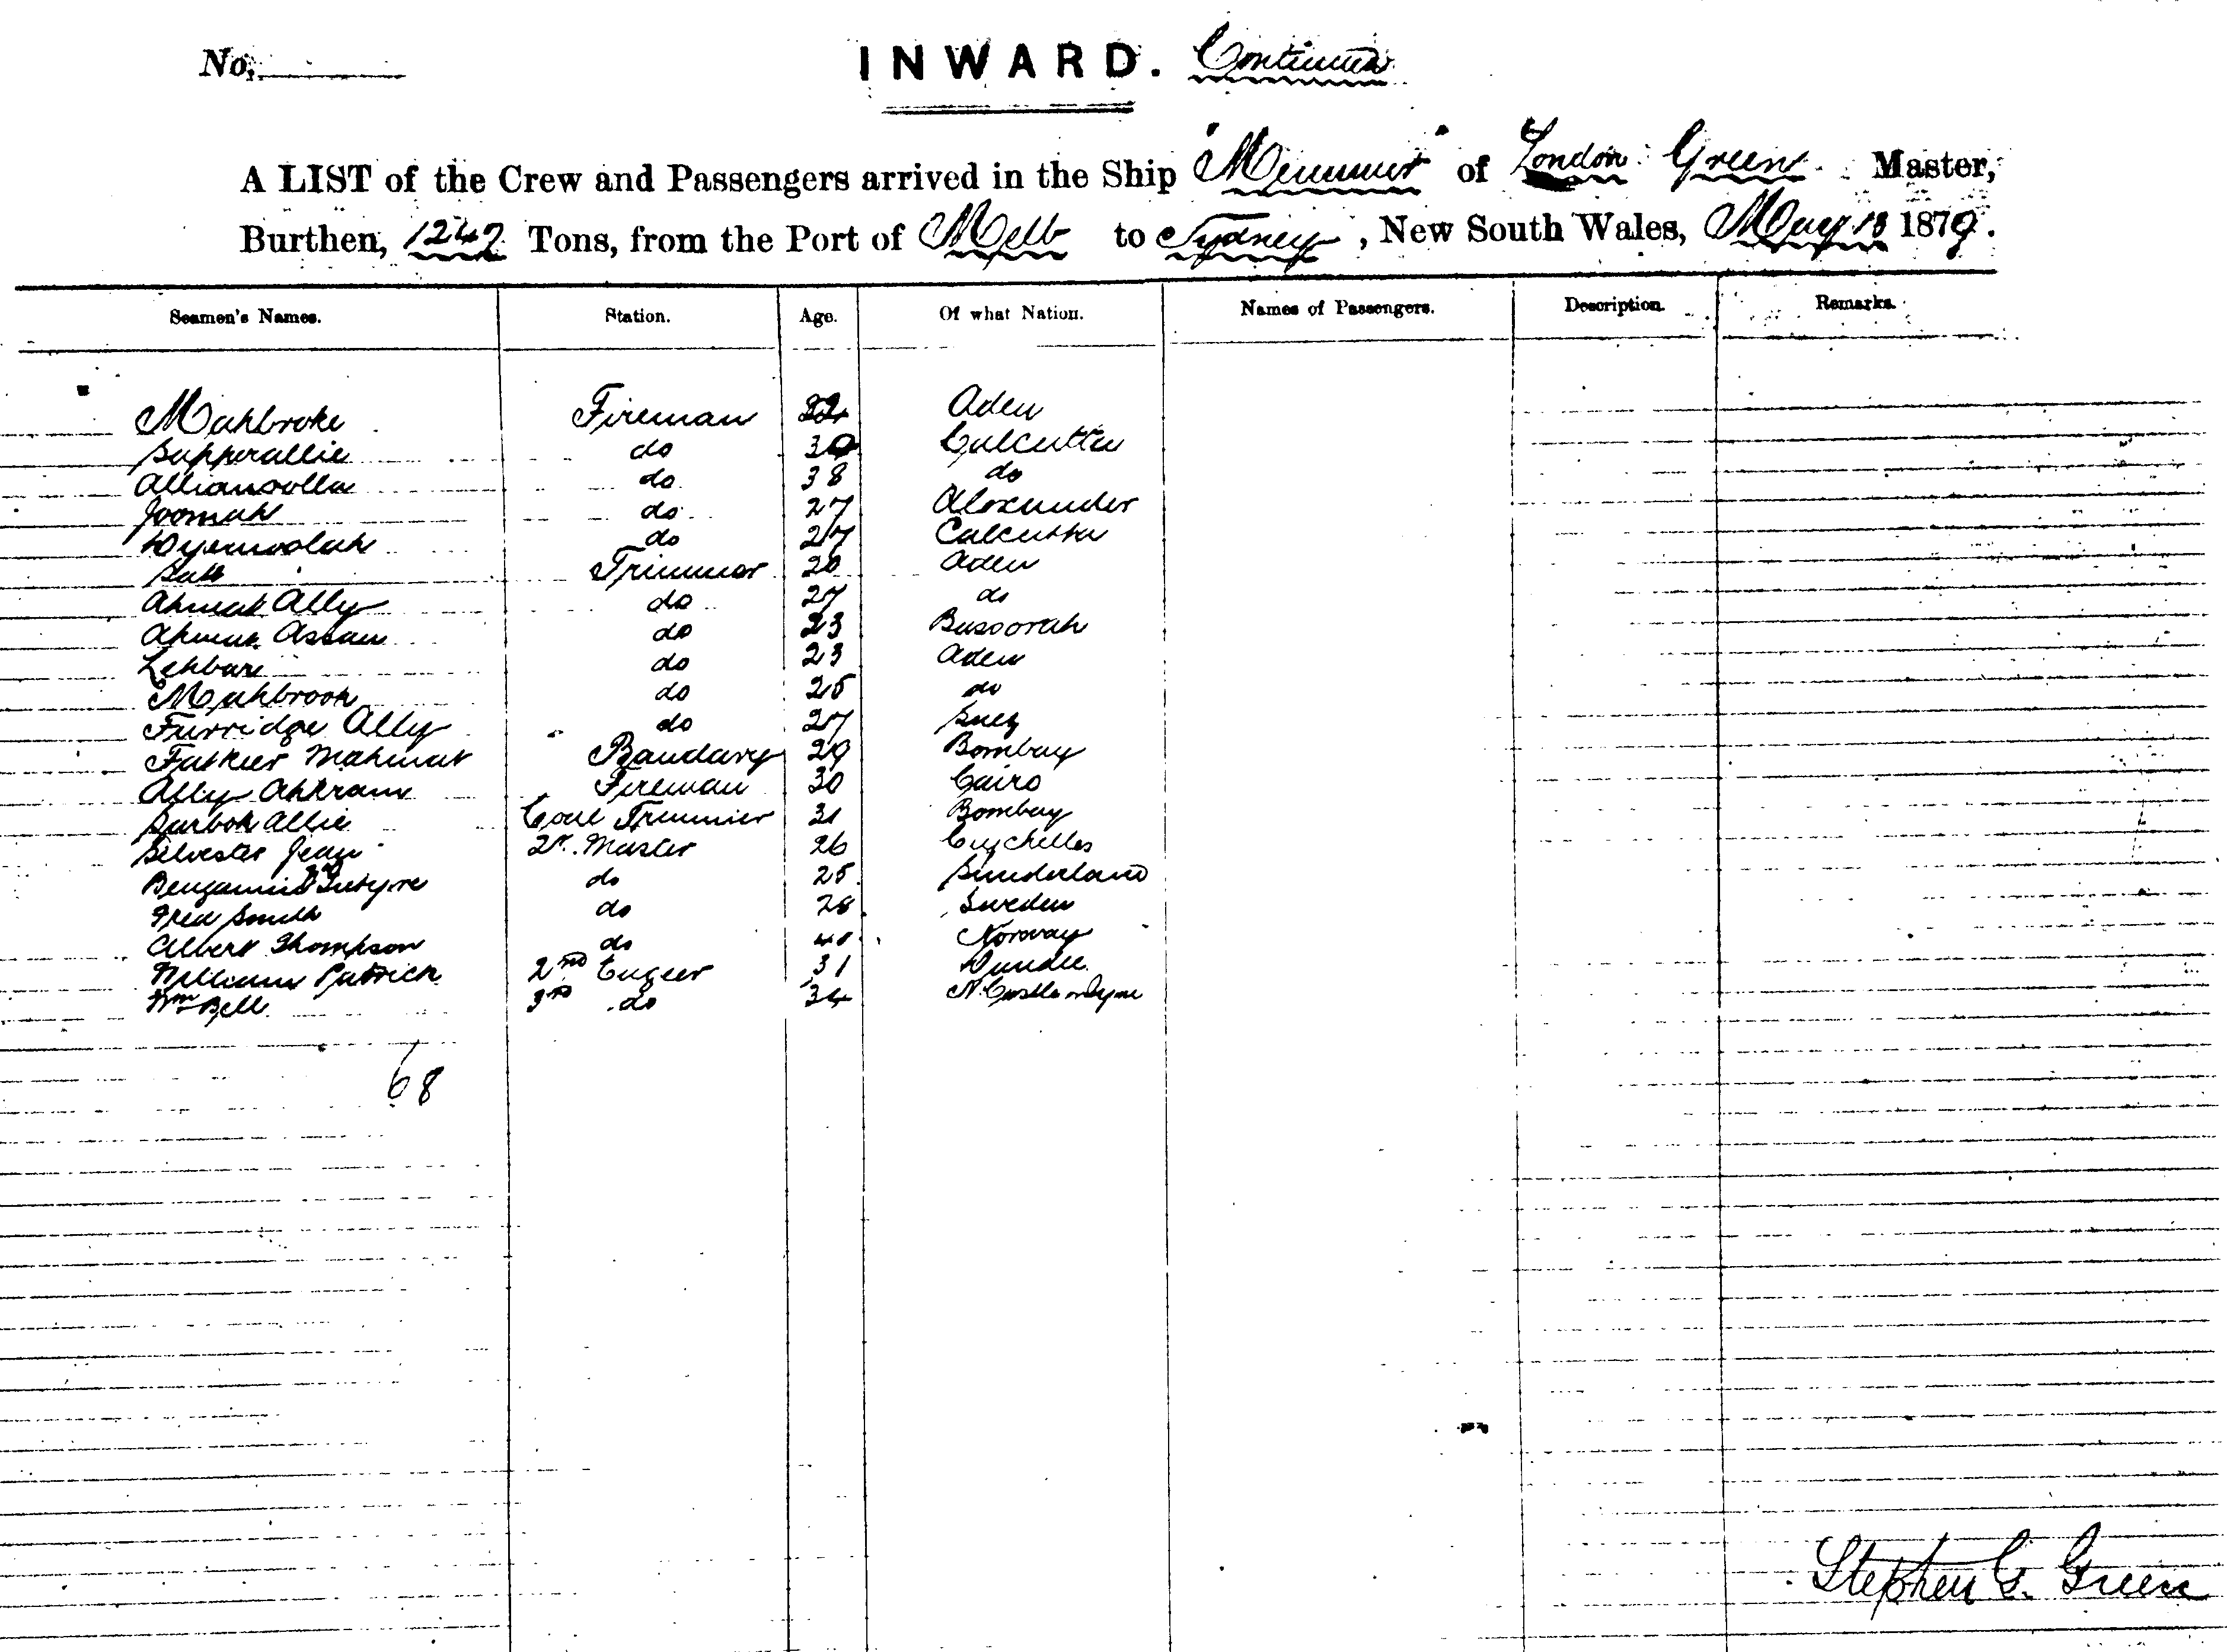 No.
INWARD. Continued
A LIST of the Crew and Passengers arrived in the Ship "Menmuir" of London Green Master,
Burthen, 1247 Tons, from the Port of Melb to Sydney, New South Wales, May 13 1879.
Seamen's Names. Station. Age. Of what Nation. Names of Passengers. Description. Remarks.
Mahbroke Fireman 22 Aden
Supperallie do 30 Calcutta
Allianoolla do 38 do
Joomah do 27 Alexander
Dyemoolah do 27 Calcutta
Trimmer 20 Aden
Ahmat Ally do 27 do
Ahmat Assan do 23 Bussorah
Lehbare do 23 Aden
Mahbrook do 25 do
Furridge Ally do 27 Suez
Futkier Mahmat Bandary 29 Bombay
Ally Ahkram Fireman 30 Cairo
Surboh Allie Coal Trimmer 31 Bombay
Silvester Jean 2r. Master 26 Cuychelles
Bengamin do 25 Sunderland
Fred Smith do 28 Sweden
Albert Thompson do Norway
William Patrick 2nd Engeer 31 Dundee
Wm Bell 3rd do 34 N. Castle on Tyne
68
Stephen G. Green